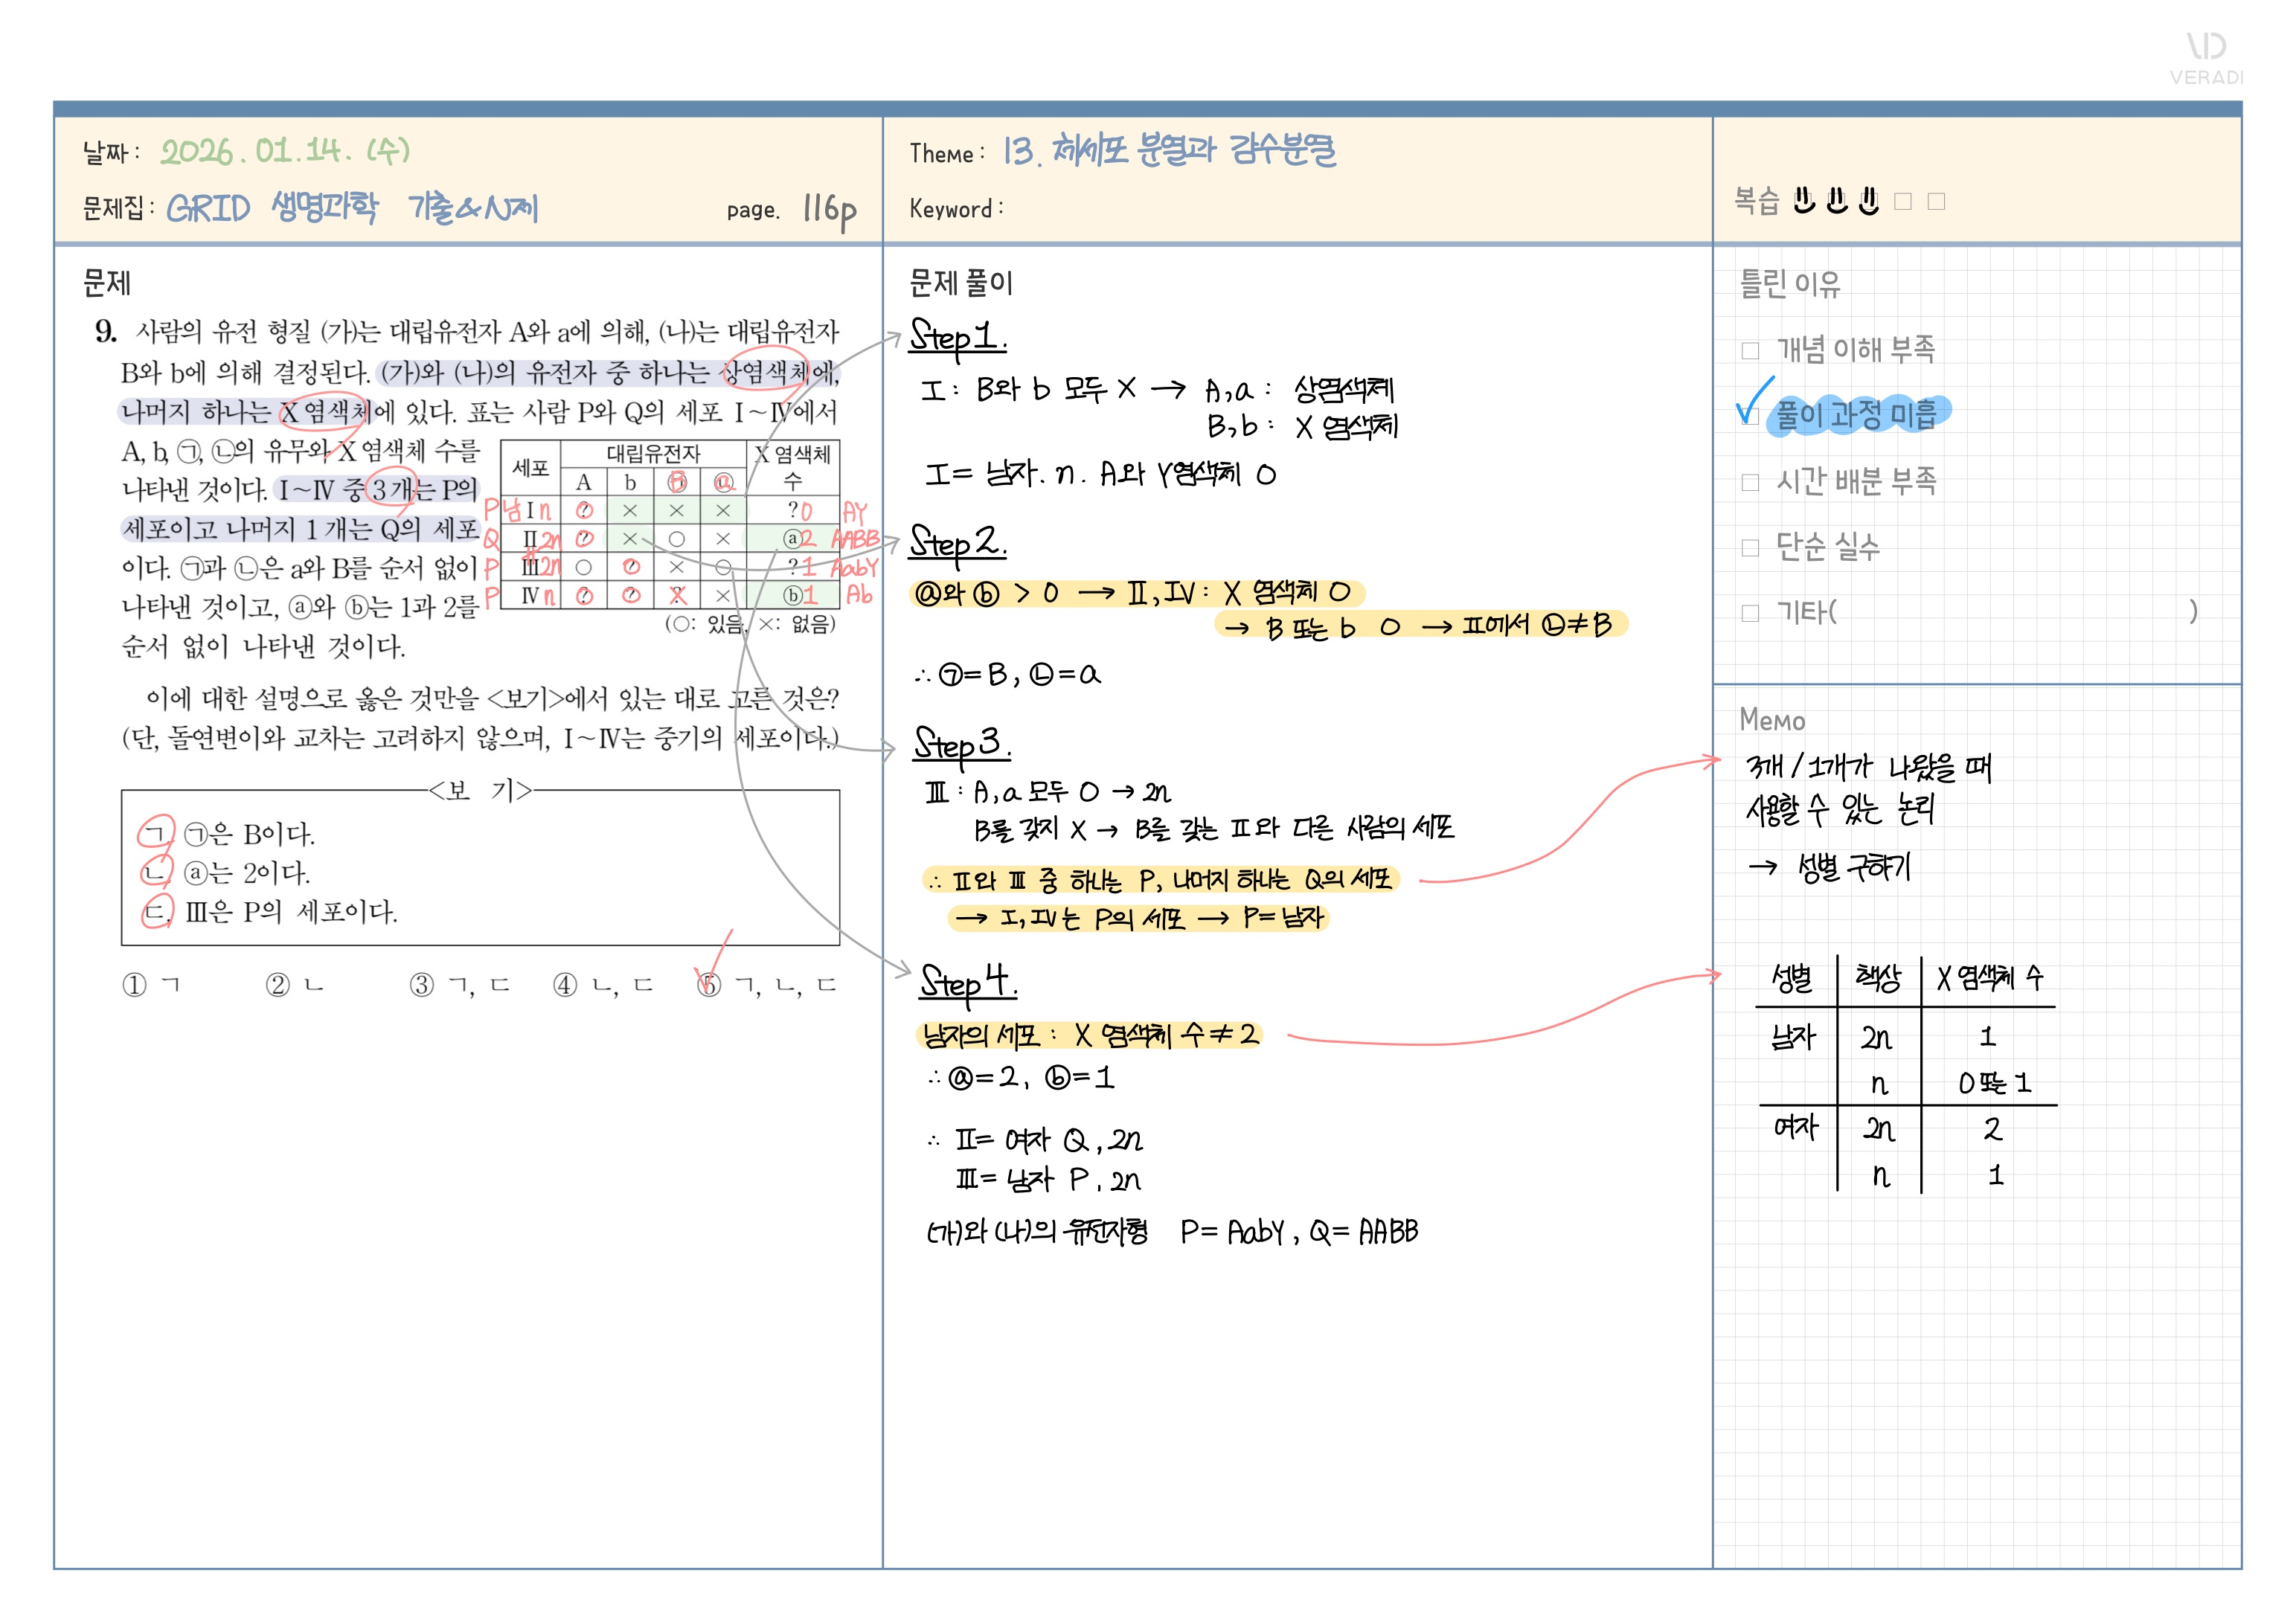 VERADI
날짜 : 2026. 01. 14. (수)
문제집 : GRID 생명과학 기출&N제 page. 116p
Theme : 13. 체세포 분열과 감수분열
Keyword :
복습
문제
9. 사람의 유전 형질 (가)는 대립유전자 A와 a에 의해, (나)는 대립유전자
B와 b에 의해 결정된다. (가)와 (나)의 유전자 중 하나는 상염색체에,
나머지 하나는 X 염색체에 있다. 표는 사람 P와 Q의 세포 Ⅰ~Ⅳ에서
A, b, ㉠, ㉡의 유무와 X 염색체 수를
나타낸 것이다. Ⅰ~Ⅳ 중 3개는 P의
세포이고 나머지 1개는 Q의 세포
이다. ㉠과 ㉡은 a와 B를 순서 없이
나타낸 것이고, ⓐ와 ⓑ는 1과 2를
순서 없이 나타낸 것이다.
세포 대립유전자 X 염색체 수
A b ㉠ B ㉡ a
P 남 Ⅰ n ? ○ × × × ? 0 AY
Q Ⅱ 2n ? ○ × ○ × ⓐ 2 AABB
P Ⅲ 2n ○ ? ○ × ○ ? 1 AabY
P Ⅳ n ? ○ ? ○ ? × × ⓑ 1 Ab
(○: 있음, ×: 없음)
이에 대한 설명으로 옳은 것만을 <보기>에서 있는 대로 고른 것은?
(단, 돌연변이와 교차는 고려하지 않으며, Ⅰ~Ⅳ는 중기의 세포이다.)
<보 기>
ㄱ. ㉠은 B이다.
ㄴ. ⓐ는 2이다.
ㄷ. Ⅲ은 P의 세포이다.
① ㄱ ② ㄴ ③ ㄱ, ㄷ ④ ㄴ, ㄷ ⑤ ㄱ, ㄴ, ㄷ
문제 풀이
Step1.
Ⅰ : B와 b 모두 X → A, a : 상염색체
B, b : X 염색체
Ⅰ = 남자. n. A와 Y염색체 O
Step2.
ⓐ와 ⓑ > 0 → Ⅱ, Ⅳ : X 염색체 O
→ B 또는 b O → Ⅱ에서 ㉡≠B
∴ ㉠=B, ㉡=a
Step3.
Ⅲ : A, a 모두 O → 2n
B를 갖지 X → B를 갖는 Ⅱ와 다른 사람의 세포
∴ Ⅱ와 Ⅲ 중 하나는 P, 나머지 하나는 Q의 세포
→ Ⅰ, Ⅳ는 P의 세포 → P= 남자
Step4.
남자의 세포 : X 염색체 수≠2
∴ ⓐ=2, ⓑ=1
∴ Ⅱ= 여자 Q, 2n
Ⅲ= 남자 P, 2n
(가)와 (나)의 유전자형 P= AabY, Q= AABB
틀린 이유
개념 이해 부족
풀이 과정 미흡
시간 배분 부족
단순 실수
기타( )
Memo
3개/1개가 나왔을 때
사용할 수 있는 논리
→ 성별 구하기
성별 핵상 X 염색체 수
남자 2n 1
n 0 또는 1
여자 2n 2
n 1